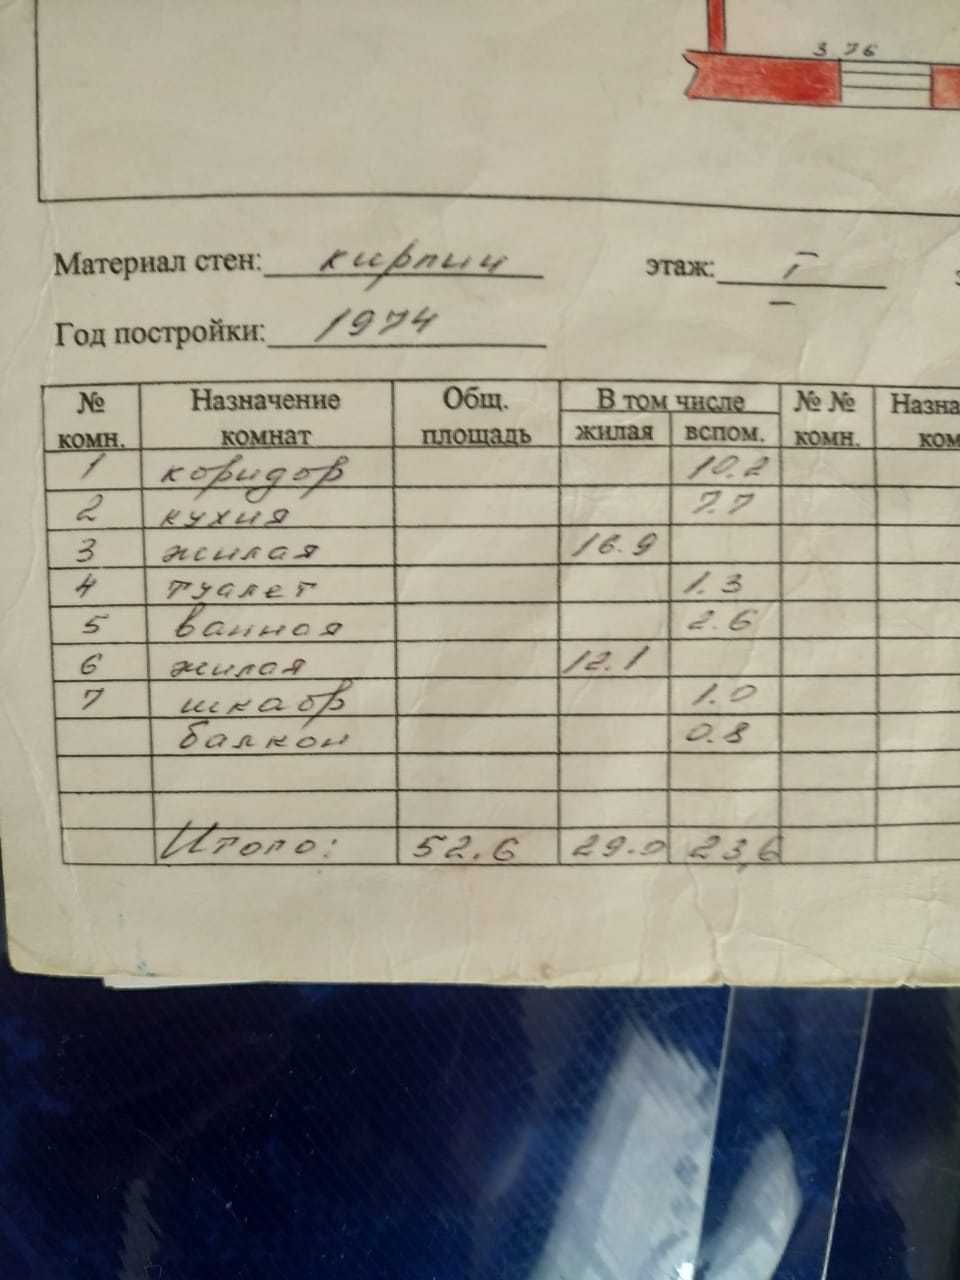 3.76
Материал стен: кирпич этаж: I
Год постройки: 1974
№ комн. Назначение комнат Общ. площадь В том числе жилая вспом. № № комн.
1 коридор 10.2
2 кухня 7.7
3 жилая 16.9
4 туалет 1.3
5 ванная 2.6
6 жилая 12.1
7 шкафр 1.0
балкон 0.8
Итого: 52.6 29.0 23,6